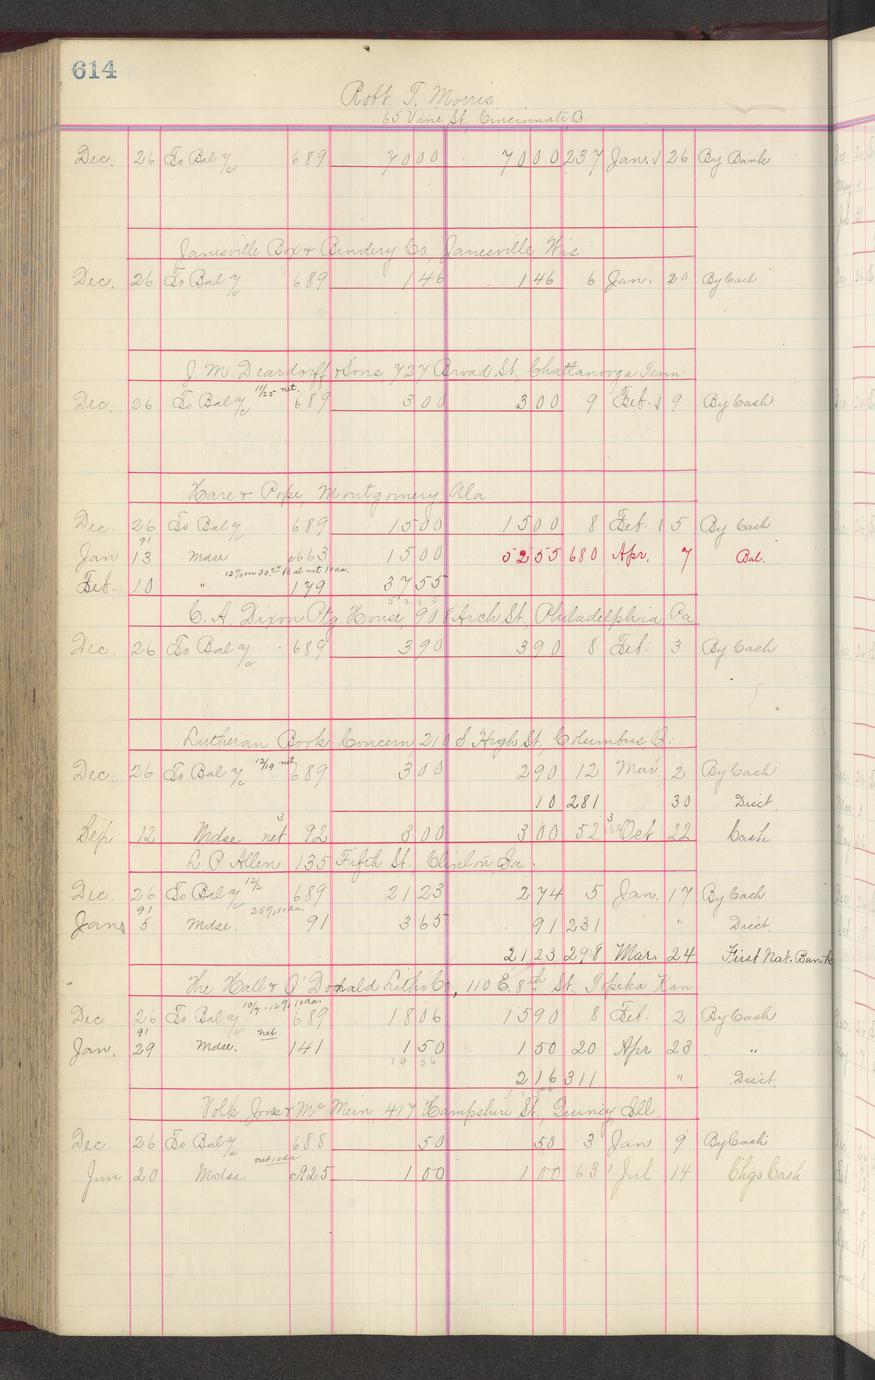 614
Robt. T. Morris
65 Vine St, Cincinnati O
Dec. 26 To Bal a/c 689 7000 7000 237 Jan. 26 By Bank
Janesville Box & Bindery Co, Janesville Wis
Dec. 26 To Bal a/c 689 146 146 6 Jan. 20 By Cash
J. M. Deardorff & Sons 727 Broad St, Chattanooga Tenn.
11/25 net.
Dec. 26 To Bal a/c 689 300 300 9 Feb. 9 By Cash
Hare & Pope, Montgomery Ala
Dec. 26 To Bal a/c 689 1500 1500 8 Feb. 5 By Cash
91
Jan 13 Mdse c663 1500 5255 680 Apr. 7 Bal.
Bal net 10 da.
Feb. 10 " 179 3755
C. A. Dixon Ptg House, 908 Arch St, Philadelphia Pa
Dec. 26 To Bal a/c 689 390 390 8 Feb. 3 By Cash
Lutheran Book Concern 210 S High St, Columbus O.
12/19 net
Dec. 26 To Bal a/c 689 300 290 12 Mar. 2 By Cash
10 281 30 Disct.
Sep 12 Mdse net 92 300 300 52 Oct 22 Cash
L P Allen 135 Fifth St. Clinton Ia.
12/2
Dec. 26 To Bal a/c 689 2123 274 5 Jan. 17 By Cash
91
Jan 5 Mdse. 91 365 91 231 " Disct.
2123 298 Mar. 24 First Nat. Bank
The Hall & O'Donald Litho Co, 110 E. 8th St, Topeka Kan
10/7-12% 10 da.
Dec. 26 To Bal a/c 689 1806 1590 8 Feb. 2 By Cash
91 net
Jan. 29 Mdse. 141 150 150 20 Apr 23 "
1956
216 311 " Disct.
Volk Jones & McMein, 417 Hampshire St, Quincy Ill.
Dec 26 To Bal a/c 688 50 50 3 Jan 9 By Cash
net 10 da
Jun 20 Mdse c925 100 100 63 Jul 14 Chgo Cash